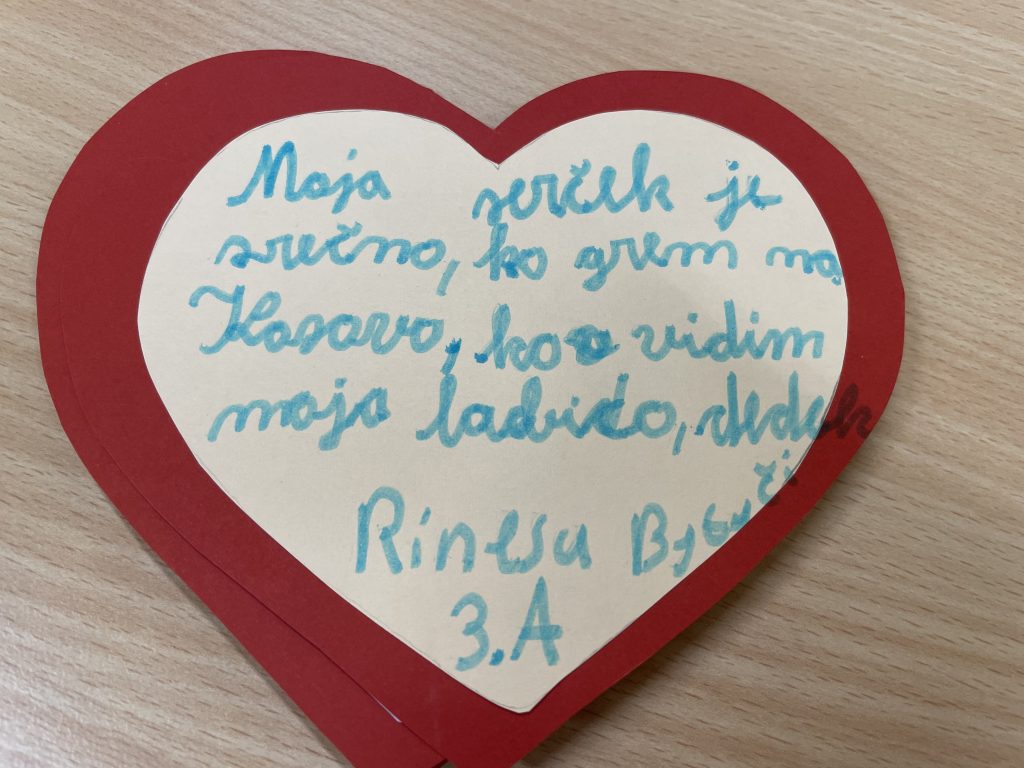 Moja serček je
srečno, ko grem na
Kosovo, ko vidim
mojo babico, dedek
Rinesa
3.A